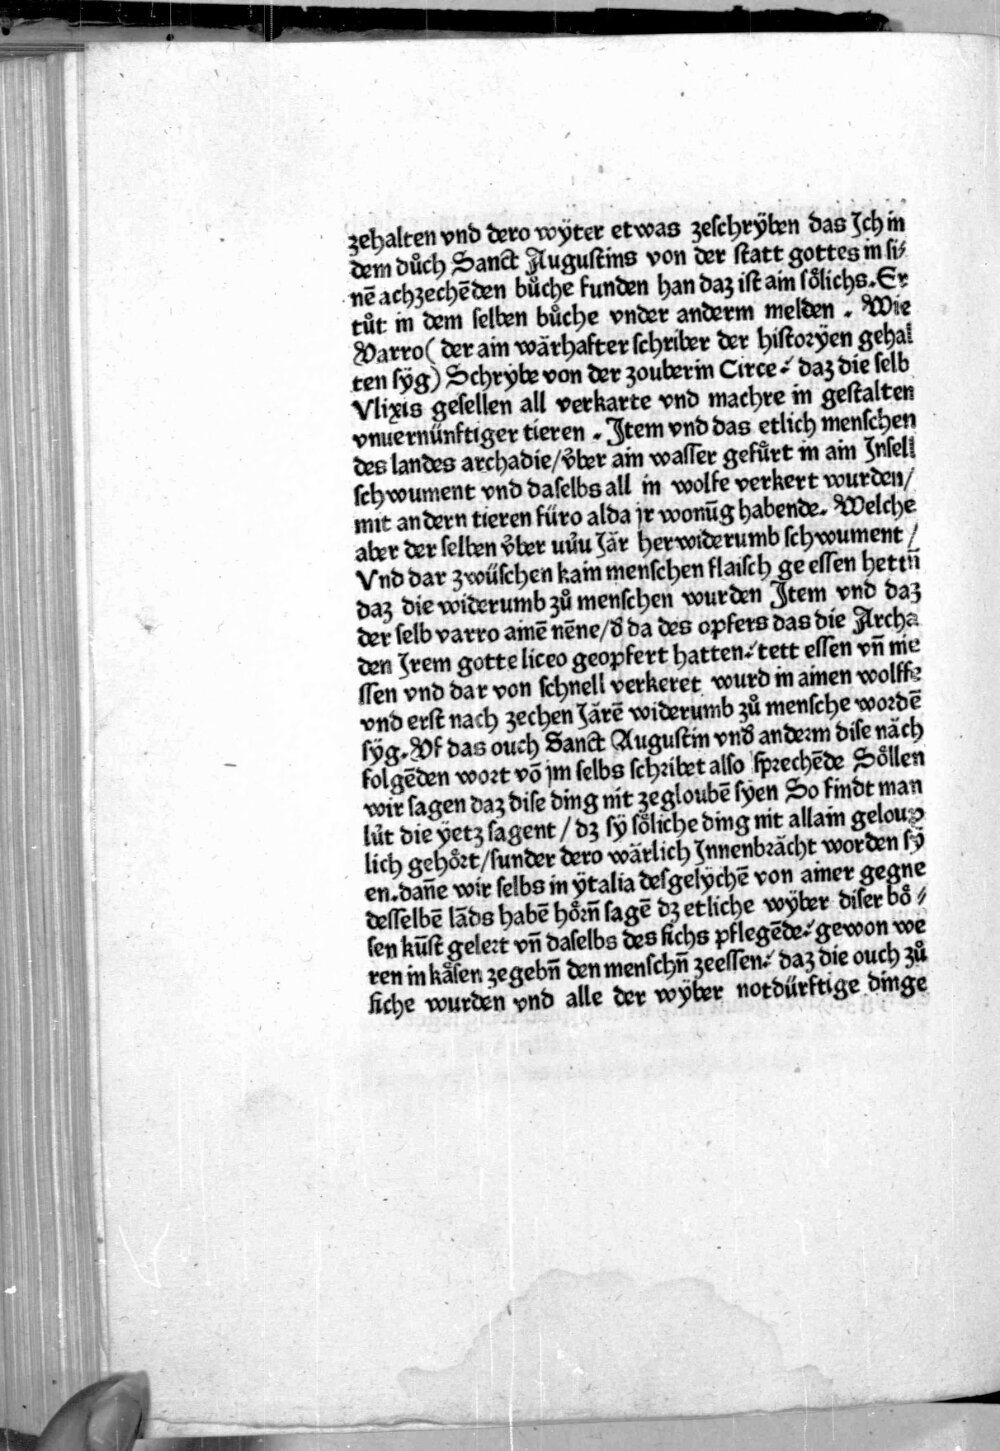 zehalten vnd dero wÿter etwas zeschrÿben das Ich in
dem důch Sanct Augustins von der statt gottes in si⸗
nē achzechēden bůche funden han daz ist ain sőlichs. Er
tůt in dem selben bůche vnder anderm melden . Wie
Varro ( der ain wārhafter schriber der historÿen gehal
ten sÿg) Schrÿbe von der zouberin Circe⸗ daz die selb
Vlixis gesellen all verkarte vnd machre in gestalten
vnuernünftiger tieren . Item vnd das etlich menschen
des landes archadie/ v̊ber ain wasser gefůrt in ain Insell
schwument vnd daselbs all in wolfe verkert wurden/
mit andern tieren füro alda jr wonūg habende. Welche
aber der selben v̊ber uůu Jār herwiderumb schwument /
Vnd dar zwüschen kain menschen flaisch ge essen hettn̄
daz die widerumb zů menschen wurden Item vnd daz
der selb varro ainē nēne/ d̕ da des opfers das die Archa
den Irem gotte liceo geopfert hatten⸗ tett essen vn̄ nie
ssen vnd dar von schnell verkeret wurd in ainen wolffe
vnd erst nach zechen Jārē widerumb zů mensche wordē
sÿg. Vf das ouch Sanct Augustin vnd̕ anderm dise nāch
folgēden wort vō jm selbs schribet also sprechēde Sőllen
wir sagen daz dise ding nit zegloubē sÿen So findt man
lůt die ÿetz sagent / dz sÿ sőliche ding nit allain geloup
lich gehőrt/ sunder dero wārlich Innenbrācht worden sÿ
en. dan̄e wir selbs in ÿtalia desgelÿchē von ainer gegne
desselbē lāds habē hőrn̄ sagē dz etliche wÿber diser bő⸗
sen kūst gelert vn̄ daselbs des fichs pflegēde⸗ gewon we
ren in kåsen zegebn̄ den menschn̄ zeessen⸗ daz die ouch zů
fiche wurden vnd alle der wÿber notdürftige dinge